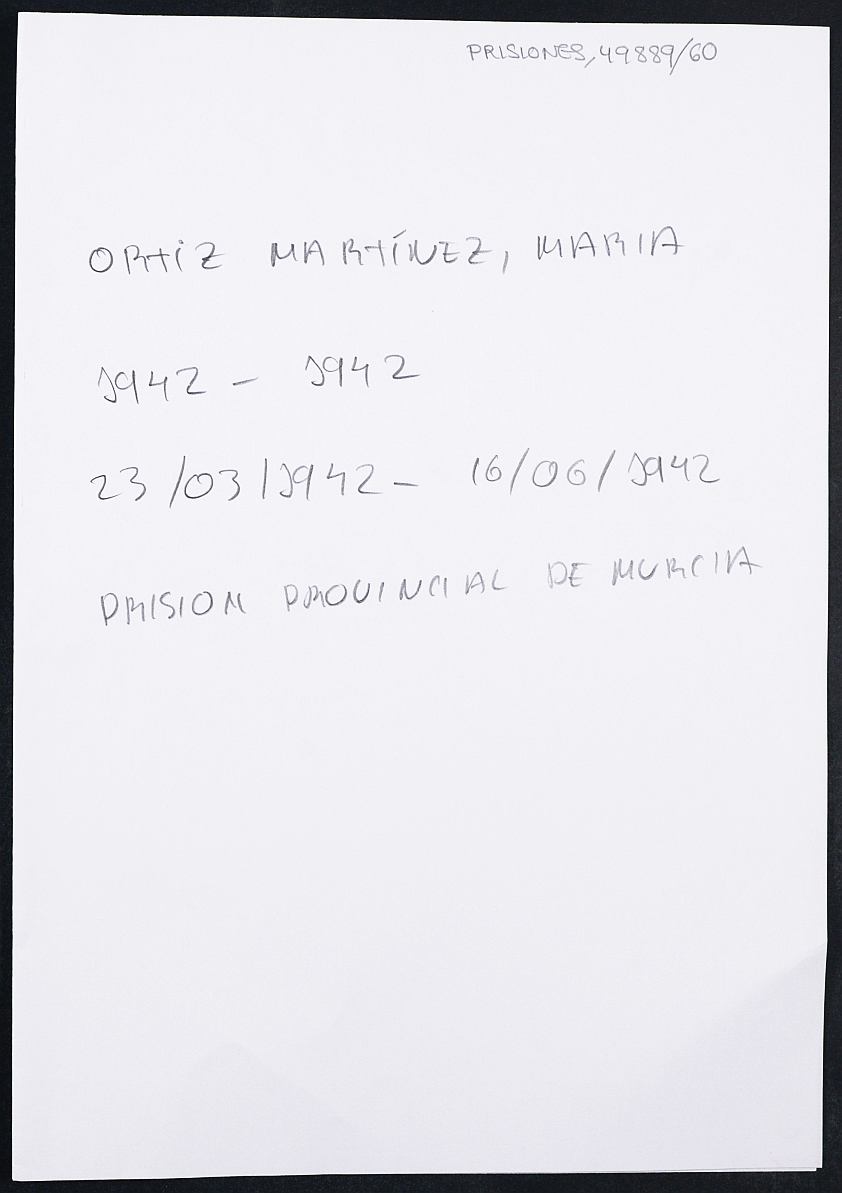 PRISIONES, 49889/60
ORTIZ MARTÍNEZ, MARIA
1942 - 1942
23/03/1942 - 16/06/1942
PRISION PROVINCIAL DE MURCIA